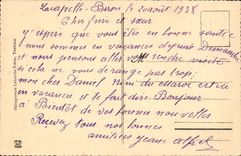 Lacapelle-Biron le 20 août 1938
Cher frère et sœur
J'espère que vous êtes en bonne santé
Nous sommes en vacances depuis Dimanche
et nous pensons aller vous rendre visite
si cela ne vous derange pas trop,
mon cher Daniel du Maroc est
en vacances et te fait dire Bonjour
à Bientôt de vos bonnes nouvelles
Recevez tous nos bonnes
amitiées Jeanne Alfred